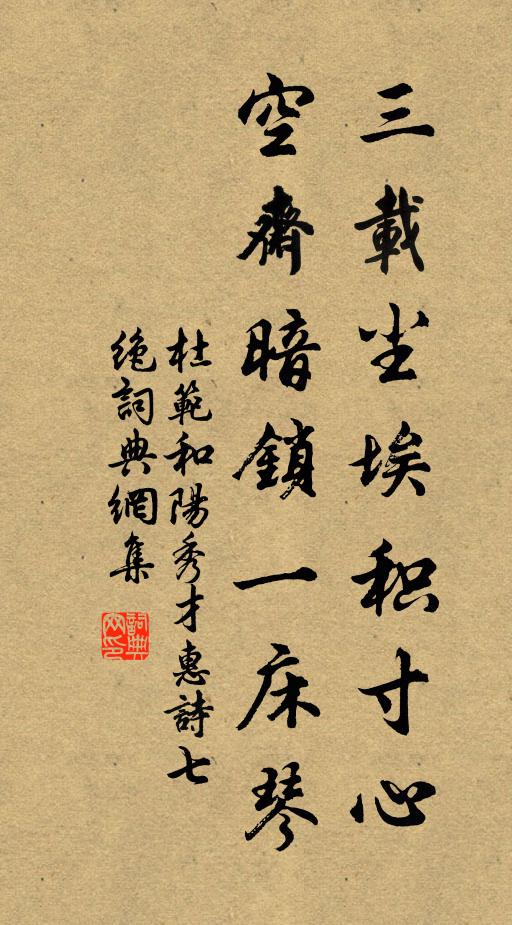 三載尘埃积寸心
空齋暗鎖一床琴
杜範和陽秀才惠詩七
絶詞典網集
詞典
网印